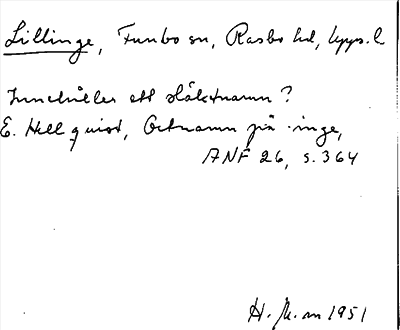 Lillinge, Funbo sn, Rasbo hd, Upps. l
Innehåller ett släktnamn?
E. Hellquist, Ortnamn på -inge,
ANF 26, s. 364
1951